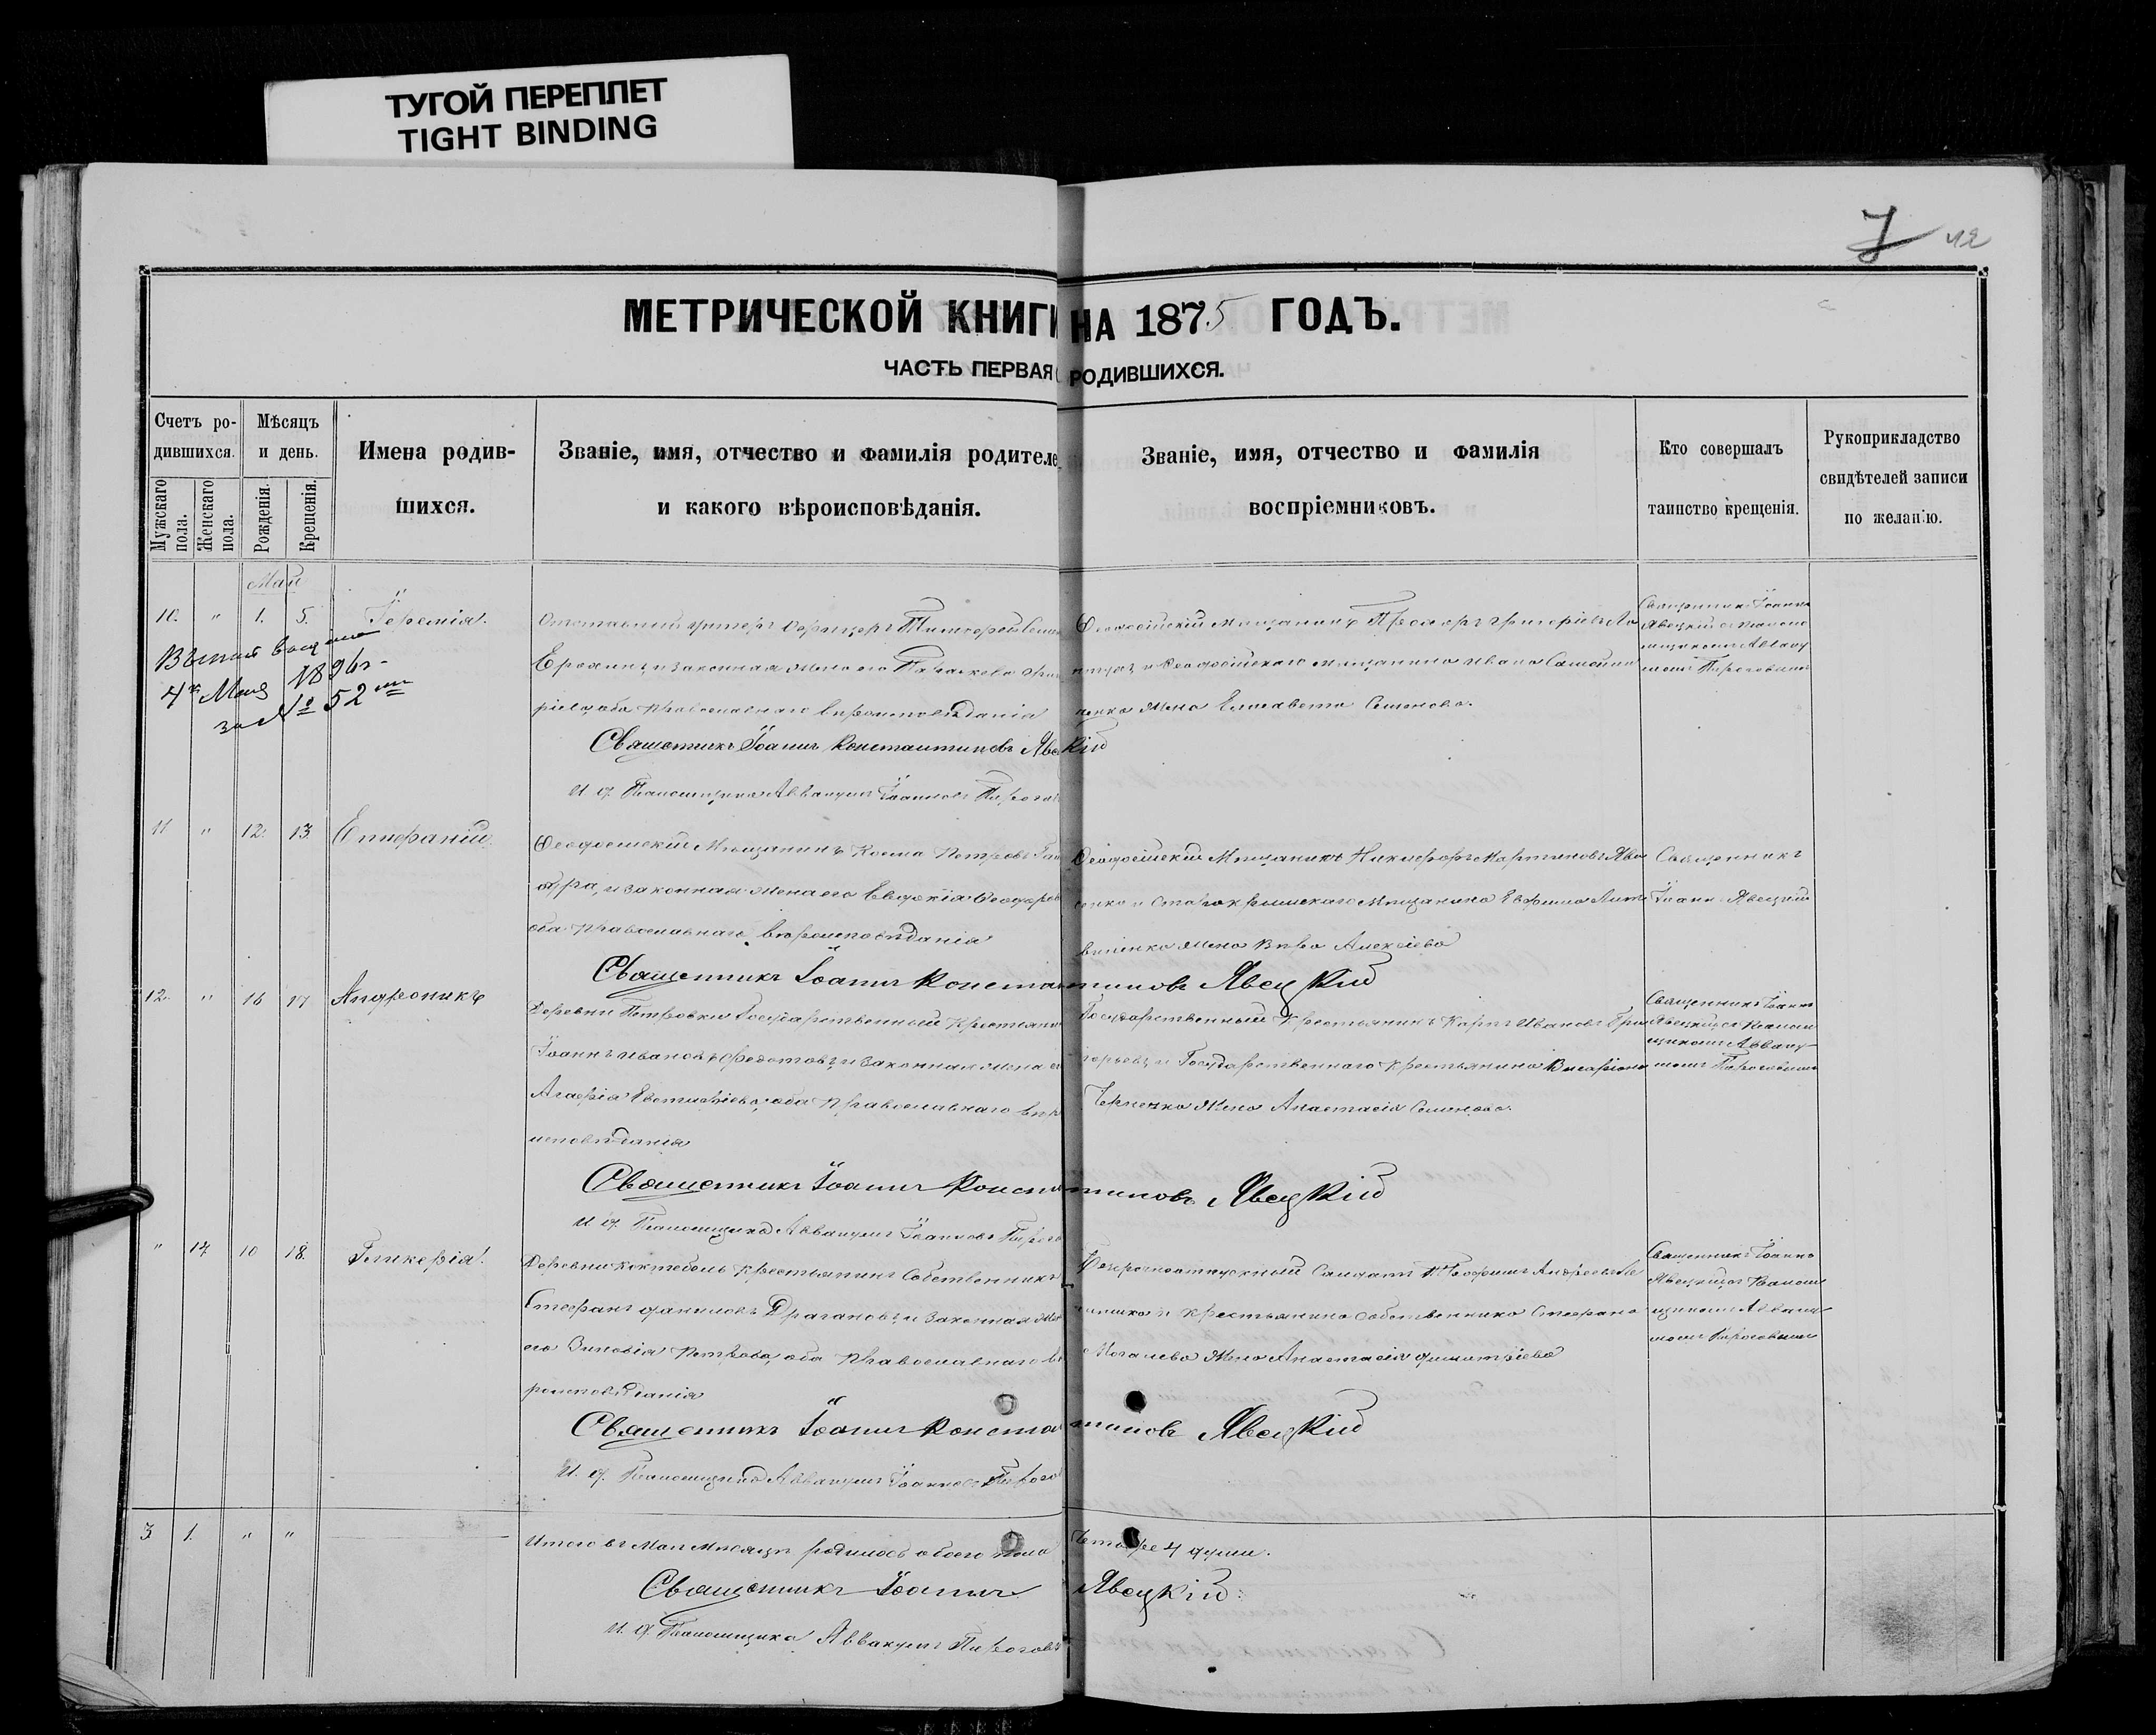 ТУГОЙ ПЕРЕПЛЕТ
TIGHT BINDING
7 42
МЕТРИЧЕСКОЙ КНИГИ НА 1875 ГОДЪ.
ЧАСТЬ ПЕРВАЯ РОДИВШИХСЯ.
Счетъ ро-
дившихся.
Мужскаго
пола.
Женскаго
пола.
Мѣсяцъ
и день.
Рожденія.
Крещенія.
Имена родив-
шихся.
Званіе, имя, отчество и фамилія родителе
и какого вѣроисповѣданія.
Званіе, имя, отчество и фамилія
воспріемниковъ.
Кто совершалъ
таинство крещенія.
Рукоприкладство
свидѣтелей записи
по желанію.
Май
10. " 1. 5. Іеремія.
4го Мая 1896г.
за № 52мъ
Отставный унтеръ Офицеръ
и законная жена его
оба православнаго вѣроисповѣданія
Священникъ Іоаннъ Константиновъ Явецкій
И. д. Псаломщика Аввакумъ Іоанновъ Пирогов
Ѳеодосійскій Мѣщанинъ Григоріевъ
и Ѳеодосійскаго мѣщанина Ивана
жена Елисавета Семенова.
Священникъ Іоаннъ
Явецкій съ Псалом
щикомъ Авваку
момъ Пироговымъ
11 " 12. 13 Епифаній.
Ѳеодосійскій Мѣщанинъ Косма Петровъ
и законная жена его Евдокія Ѳеодоров
оба православнаго вѣроисповѣданія
Священникъ Іоаннъ Константиновъ Явецкій
Ѳеодосійскій Мѣщанинъ Никифоръ Мартиновъ Яво
енко и Старокрымскаго Мѣщанина Евфима Лит
виненко жена Вѣра Алексіева
Священникъ
Іоаннъ Явецкій
12. " 16 17 Андроникъ
Деревни Петровки Государственный Крестьянин
Іоаннъ Ивановъ Федотовъ и законная жена е
Агафія оба православнаго вѣро
исповѣданія
Священникъ Іоаннъ Константиновъ Явецкій
И. д. Псаломщика Аввакумъ Іоанновъ Пирого
Государственный Крестьянинъ Карпъ Ивановъ Гри
горьевъ и Государственнаго Крестьянина Висаріона
жена Анастасія Семенова.
Священникъ Іоаннъ
Явецкій съ Псалом
щикомъ Авваку
момъ Пироговымъ
" 14 10 18. Гликерія.
Деревни Коктебель Крестьянинъ Собственникъ
Стефанъ Даниловъ Драгановъ и законная же
его Зиновія Петрова, оба Православнаго Вѣ
роисповѣданія
Священникъ Іоаннъ Константиновъ Явецкій
И. д. Псаломщика Аввакумъ Іоанновъ Пирого
Безсрочноотпускный Солдатъ Андреевъ
и крестьянина собственника Стефана
жена Анастасія Димитріева
Священникъ Іоаннъ
Явецкій съ Псалом
щикомъ Авваку
момъ Пироговымъ
3 1. " "
Итого въ Маѣ Мѣсяцѣ родилось обоего пола Четыре 4 души.
Священникъ Іоаннъ Явецкій
И. д. Псаломщика Аввакумъ Пироговъ